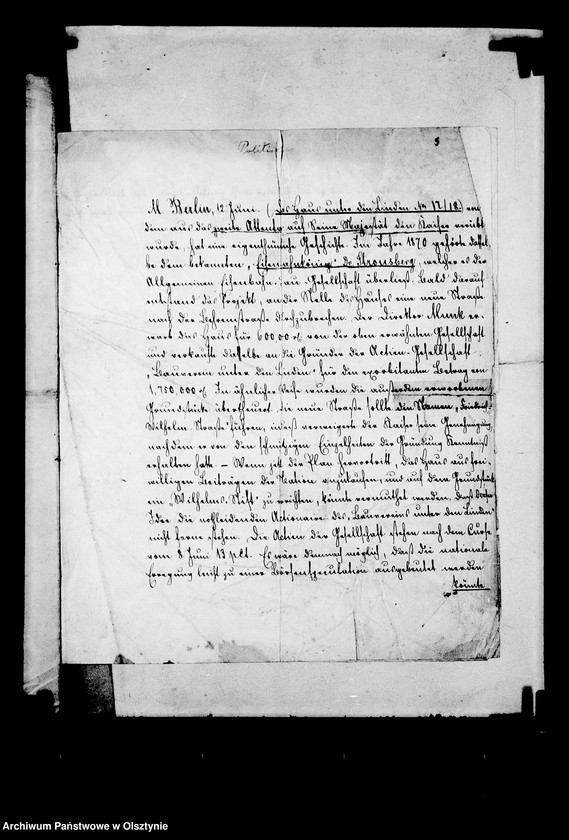 Politik
8
M Berlin, 12 Juni. (Das Haus unter den Linden No 17/18) von
dem aus das zweite Attentat auf Seine Majestät den Kaiser verübt
wurde, hat eine eigenthümliche Geschichte. Im Jahre 1870 gehörte dassel-
be dem bekannten, Eisenbahnkönig Dr Strousberg, welcher es der
Allgemeinen Eisenbahn-bau Gesellschaft überließ. Bald darauf
entstand das Projekt, an der Stelle des Hauses eine neue Straße
nach der Behrenstraße durchzubrechen. Der Direktor Munk er-
warb das Haus für 600000 von der eben erwähnten Gesellschaft
und verkaufte dasselbe an die Gründer der Actien-Gesellschaft
„Bauverein unter den Linden" für den exorbitanten Betrag von
1,750,000 In ähnlicher Weise wurden die außerdem erworbenen
Grundstücke übertheuert. Die neue Straße sollte den Namen „Friedrich-
Wilhelm-Straße" führen, indeß verweigerte der Kaiser seine Genehmigung,
nachdem er von den schmutzigen Einzelheiten der Gründung Kenntniß
erhalten hatte – Wenn jetzt der Plan hervortritt, das Haus aus frei-
willigen Beiträgen der Nation anzukaufen, und auf dem Grundstück
ein „Wilhelms-Stift" zu errichten, könnte vermuthet werden, daß dieser
Idee die nothleidenden Actionaire des „Bauvereins unter den Linden"
nicht ferne stehen. Die Actien der Gesellschaft stehen nach dem Curse
vom 8 Juni 13 p.Ct. Es wäre demnach möglich, daß die nationale
Erregung leicht zu einer Börsenspeculation ausgebeutet werden
könnte.
Archiwum Państwowe w Olsztynie